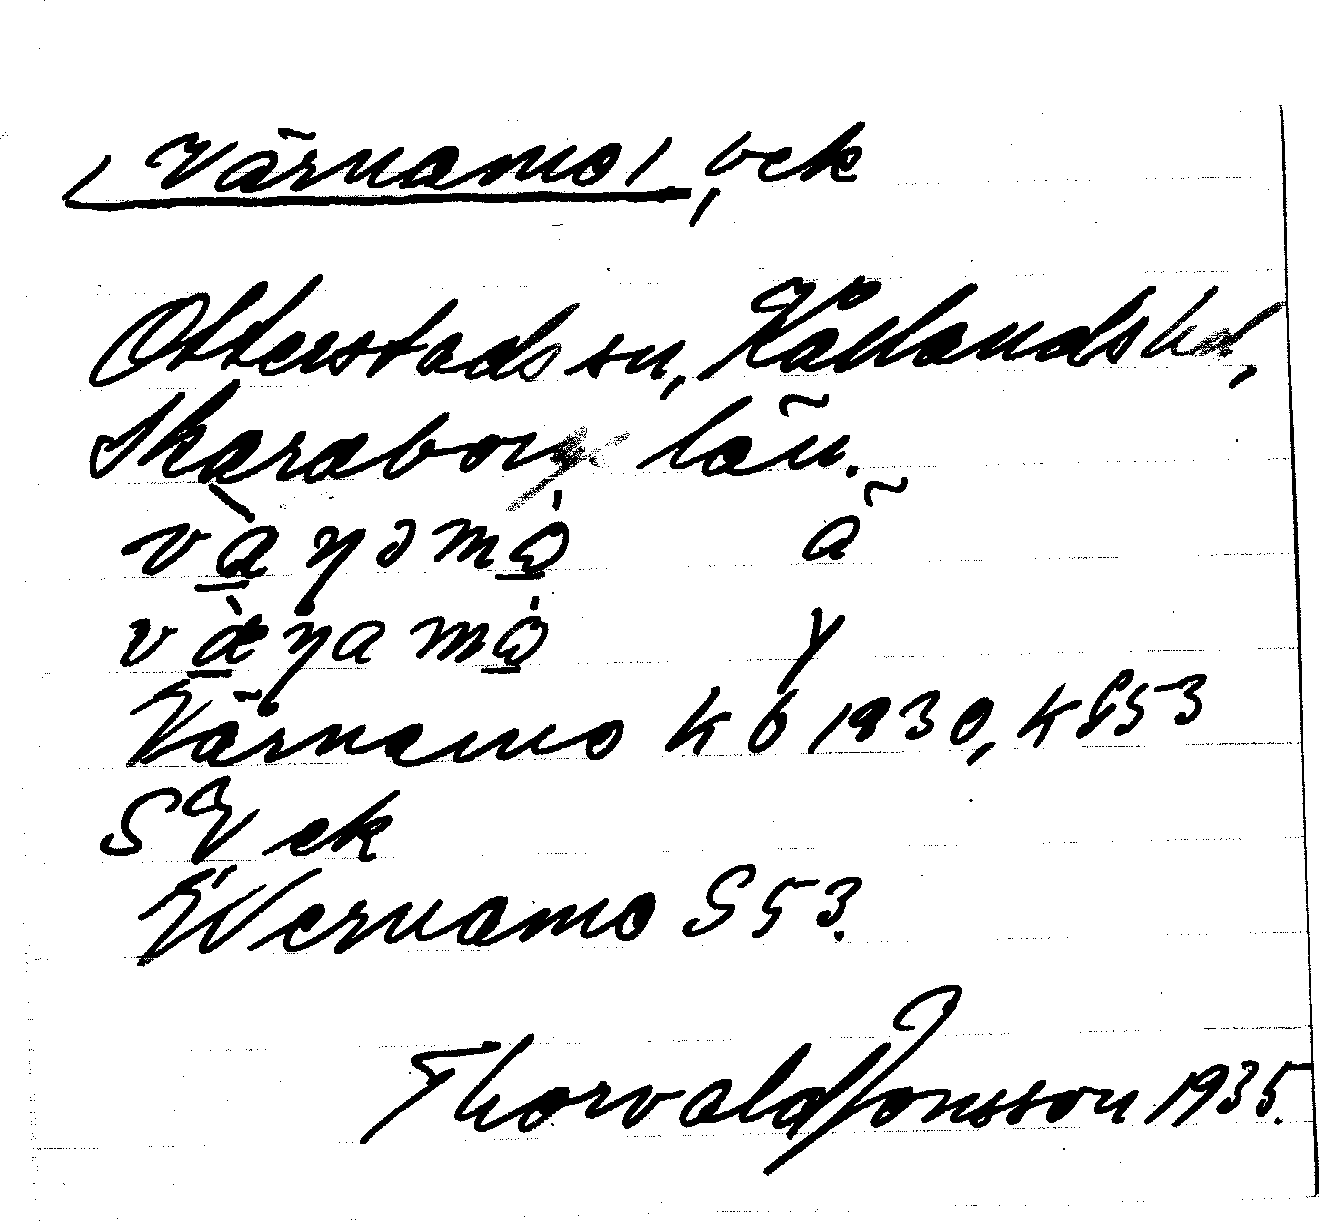 (Värnamo), ek
Otterstads sn, Kållands hd,
Skaraborgs län.
vàŋəmò ã
væ̀ŋamò y
Värnamo kb 1930, k S53
SV ek
Wernamo S 53.
Thorvald Jonsson 1935.